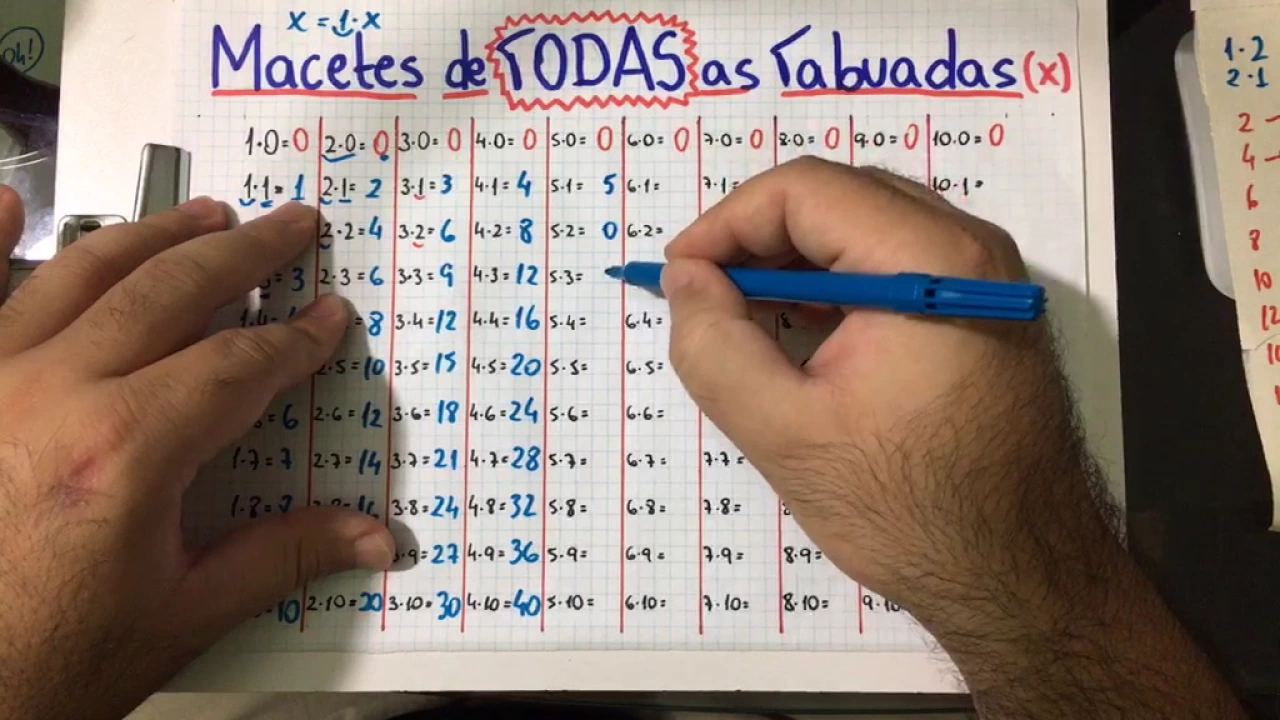 x = 1·x
Oh!
Macetes de TODAS as Tabuadas (x)
1·0=0 2·0=0 3·0=0 4·0=0 5·0=0 6·0=0 7·0=0 8·0=0 9·0=0 10·0=0
1·1=1 2·1=2 3·1=3 4·1=4 5·1= 5 6·1= 7·1= 10·1=
2·2=4 3·2=6 4·2=8 5·2= 0 6·2=
3 2·3=6 3·3=9 4·3=12 5·3=
1·4= =8 3·4=12 4·4=16 5·4= 6·4= 8
2·5=10 3·5=15 4·5=20 5·5= 6·5=
=6 2·6=12 3·6=18 4·6=24 5·6= 6·6=
1·7=7 2·7=14 3·7=21 4·7=28 5·7= 6·7= 7·7=
1·8= 3·8=24 4·8=32 5·8= 6·8= 7·8=
·9=27 4·9=36 5·9= 6·9= 7·9= 8·9=
10 2·10=20 3·10=30 4·10=40 5·10= 6·10= 7·10= 8·10= 9·10
1·2
2·1
2
4
6
8
10
12